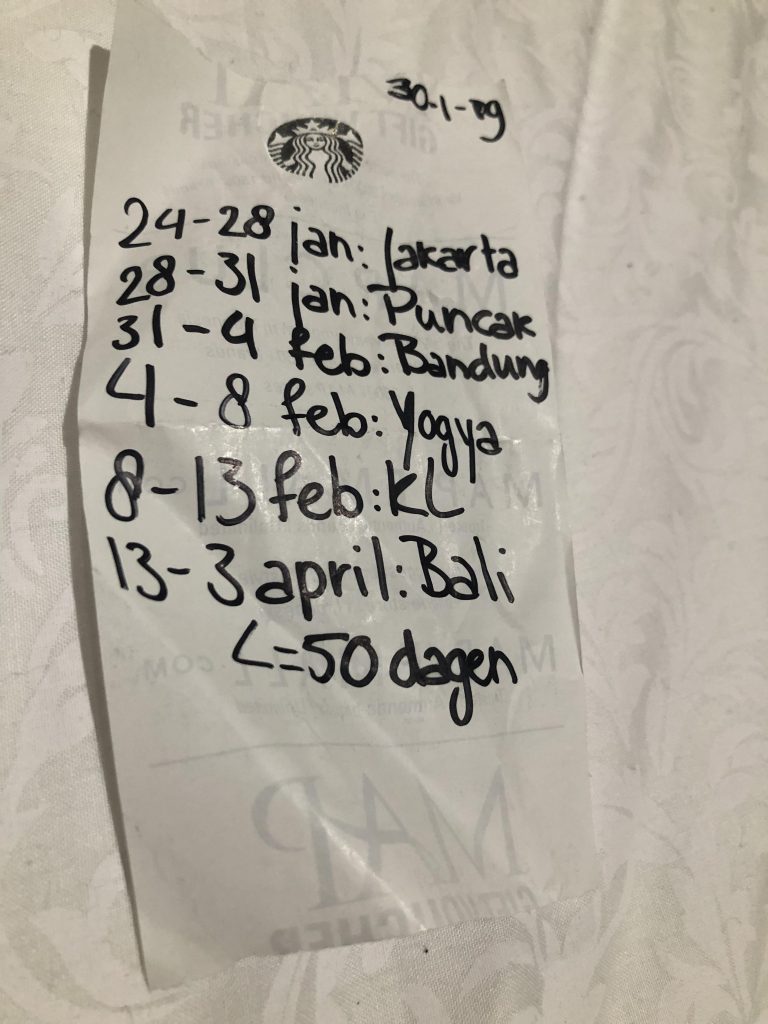 30-1-19
24-28 jan: Jakarta
28-31 jan: Puncak
31-4 feb: Bandung
4-8 feb: Yogya
8-13 feb: KL
13-3 april: Bali
<=50 dagen
MAP